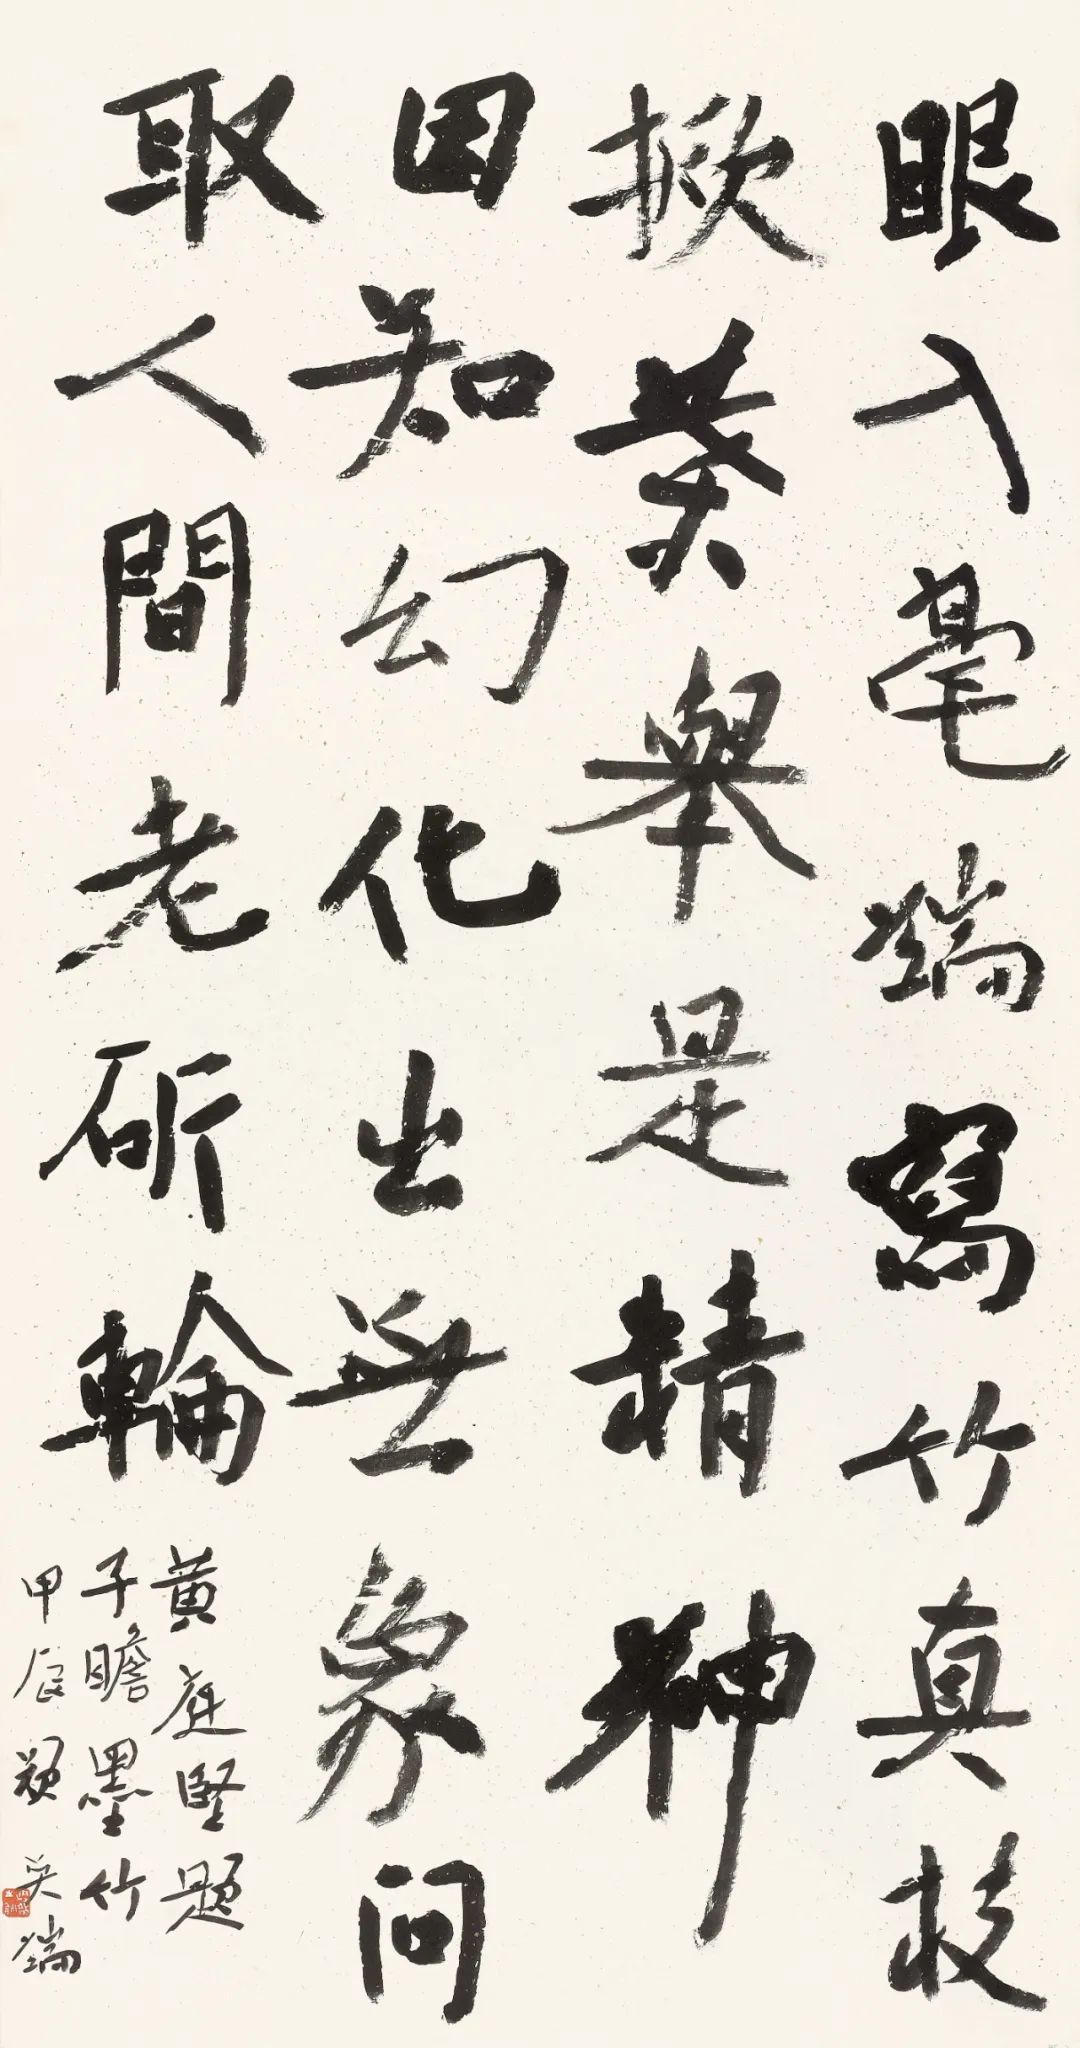 眼入毫端寫竹真枝
掀葉舉是精神
因知幻化出無象問
取人間老斫輪
黄庭堅題
子瞻墨竹
甲辰 端